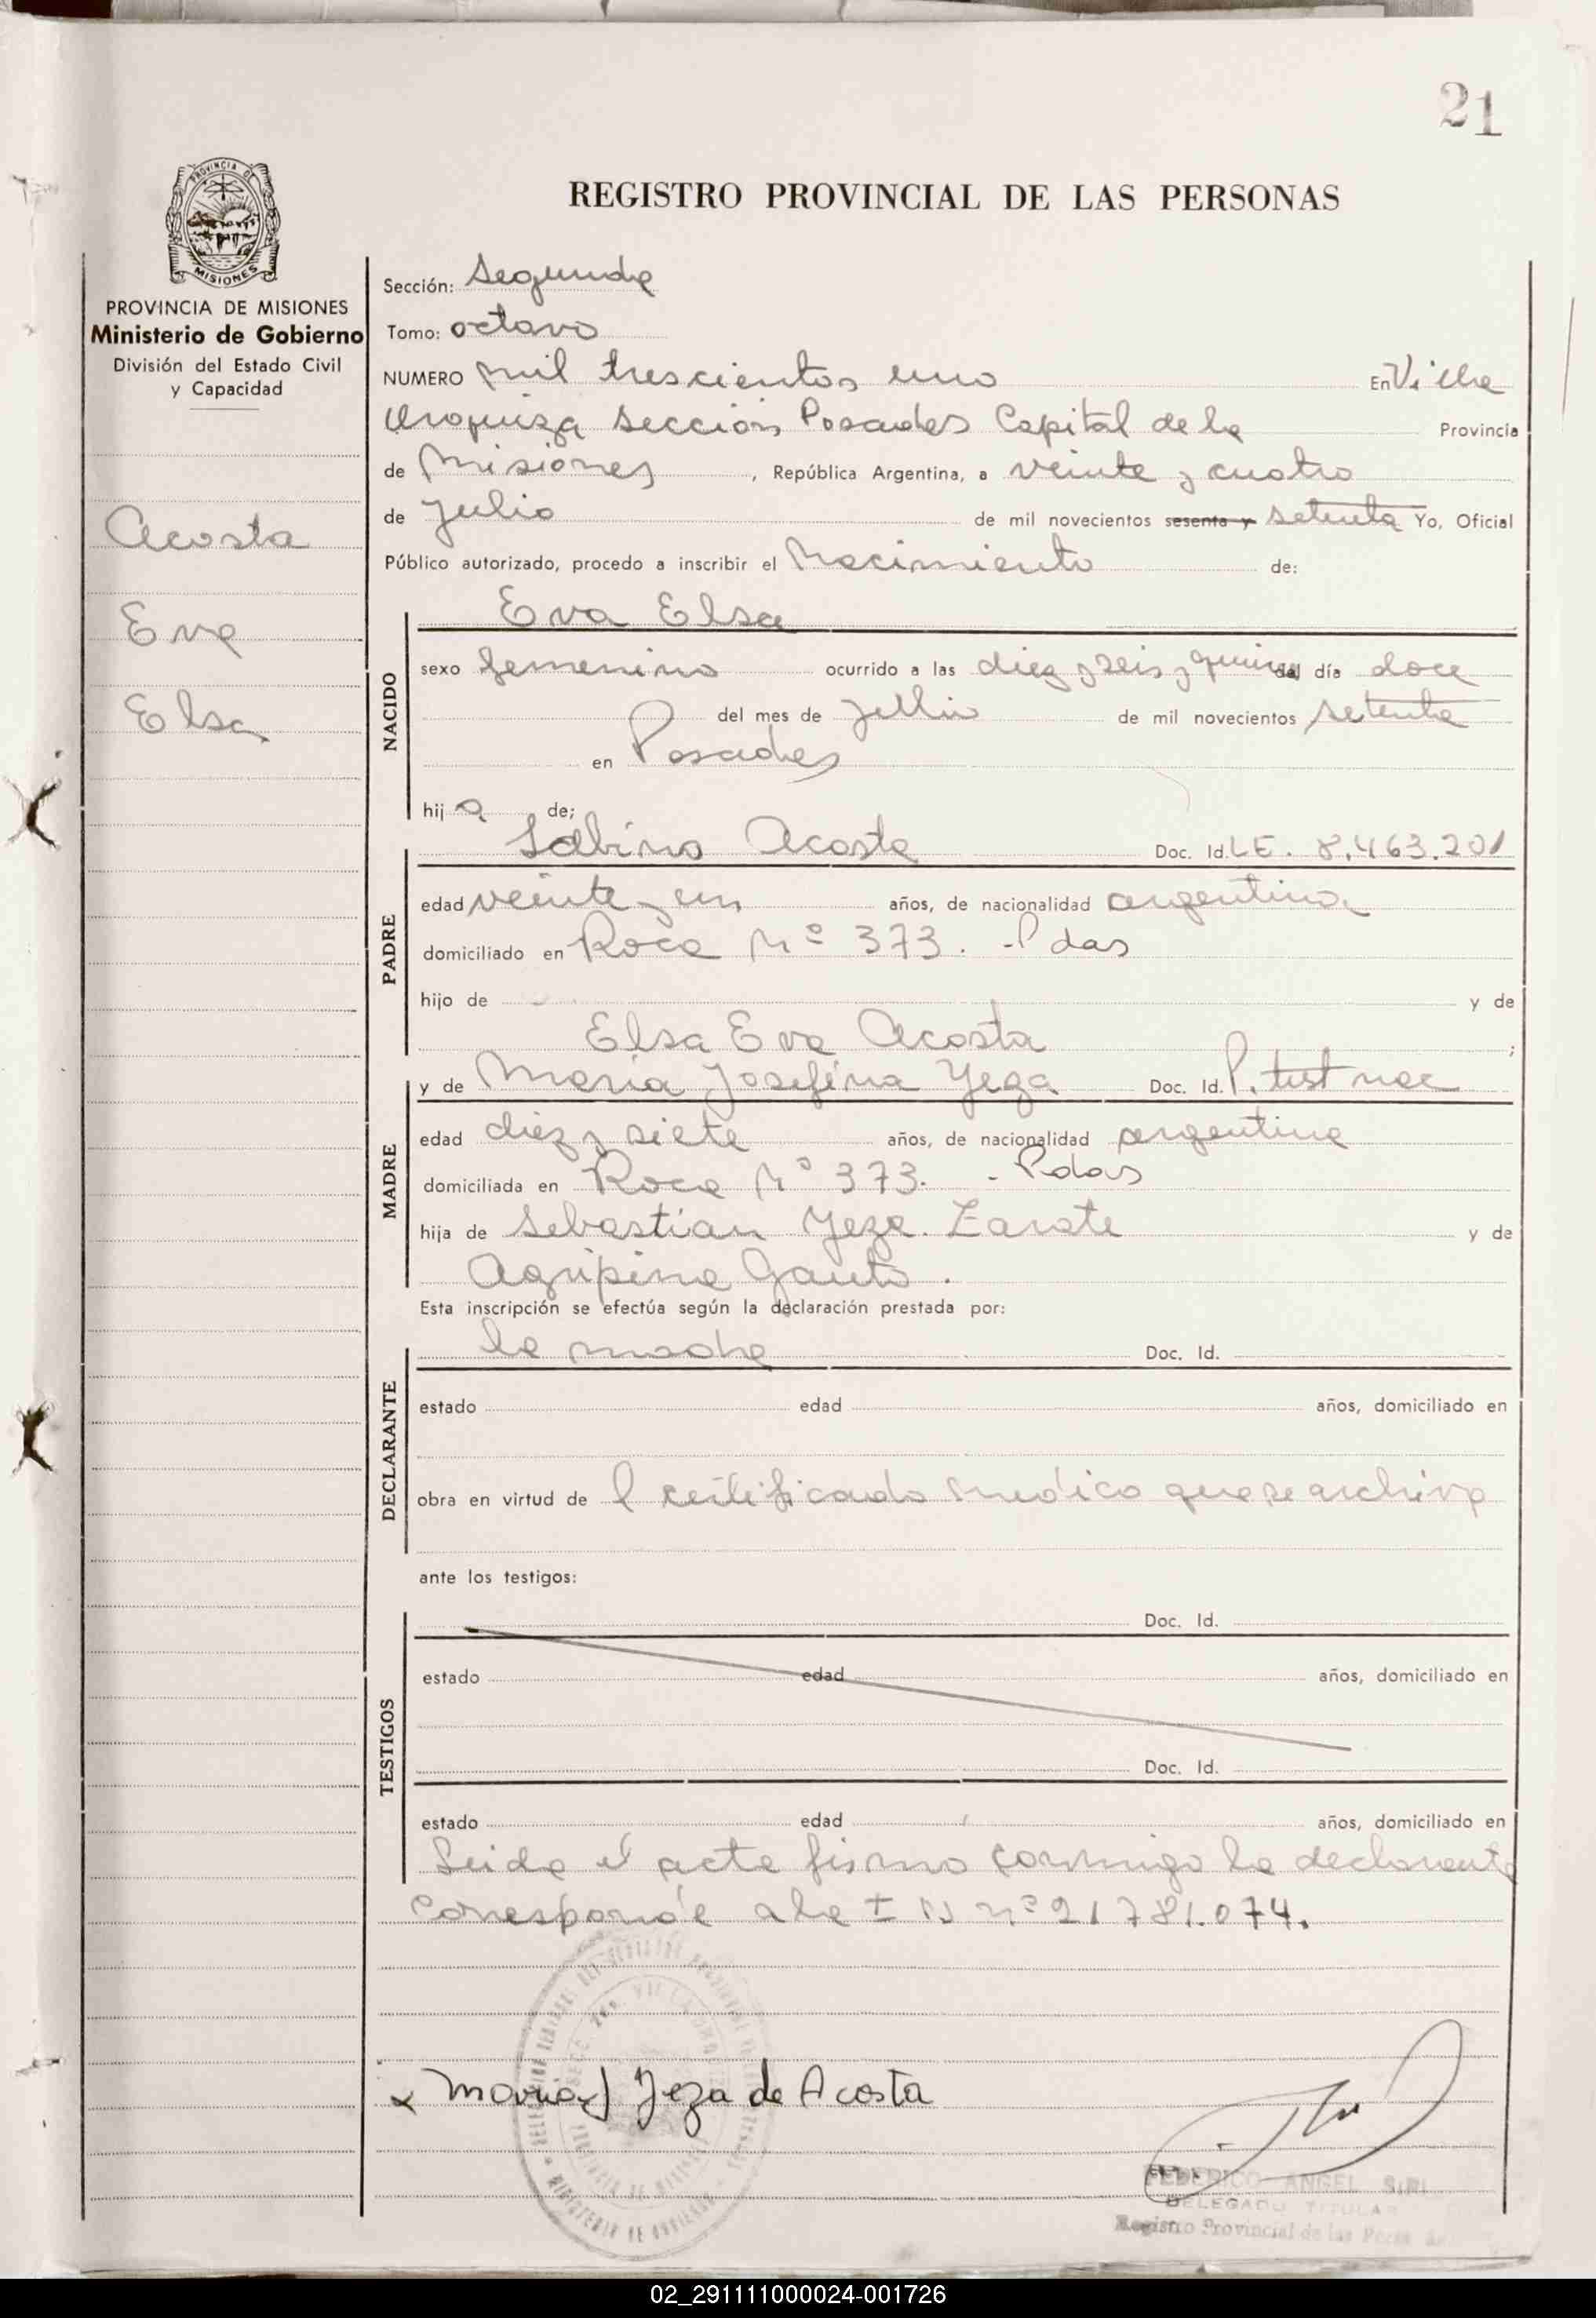 21
REGISTRO PROVINCIAL DE LAS PERSONAS
PROVINCIA DE
MISIONES
PROVINCIA DE MISIONES
Ministerio de Gobierno
División del Estado Civil
y Capacidad
Acosta
Eva
Elsa
Sección: Segunda
Tomo: octavo
NUMERO mil trescientos uno En Villa
Urquiza Sección Posadas Capital de la Provincia
de Misiones, República Argentina, a veinte y cuatro
de Julio de mil novecientos sesenta y setenta Yo, Oficial
Público autorizado, procedo a inscribir el Nacimiento de:
NACIDO
Eva Elsa
sexo femenino ocurrido a las diez y seis y quince del día doce
del mes de Julio de mil novecientos setenta
en Posadas
hija de;
PADRE
Sabino Acosta Doc. Id. LE. 8.463.201
edad veinte y un años, de nacionalidad argentina
domiciliado en Roca Nº 373. - Pdas
hijo de y de
Elsa Eva Acosta ;
MADRE
y de Maria Josefina Yeza Doc. Id. P. test nac
edad diez y siete años, de nacionalidad argentina
domiciliada en Roca Nº 373. - Pdas
hija de Sebastian Yeza. Zarate y de
Agripina Gauto.
Esta inscripción se efectúa según la declaración prestada por:
DECLARANTE
la madre Doc. Id.
estado edad años, domiciliado en
obra en virtud de l certificado medico que se archiva
ante los testigos:
TESTIGOS
Doc. Id.
estado edad años, domiciliado en
Doc. Id.
estado edad años, domiciliado en
Leida el acta firma conmigo la declarante
Corresponde a la I N nº 21781.074.
Maria J Yeza de Acosta
FEDERICO ANGEL
DELEGADO TITULAR
Registro Provincial de las
02_291111000024-001726